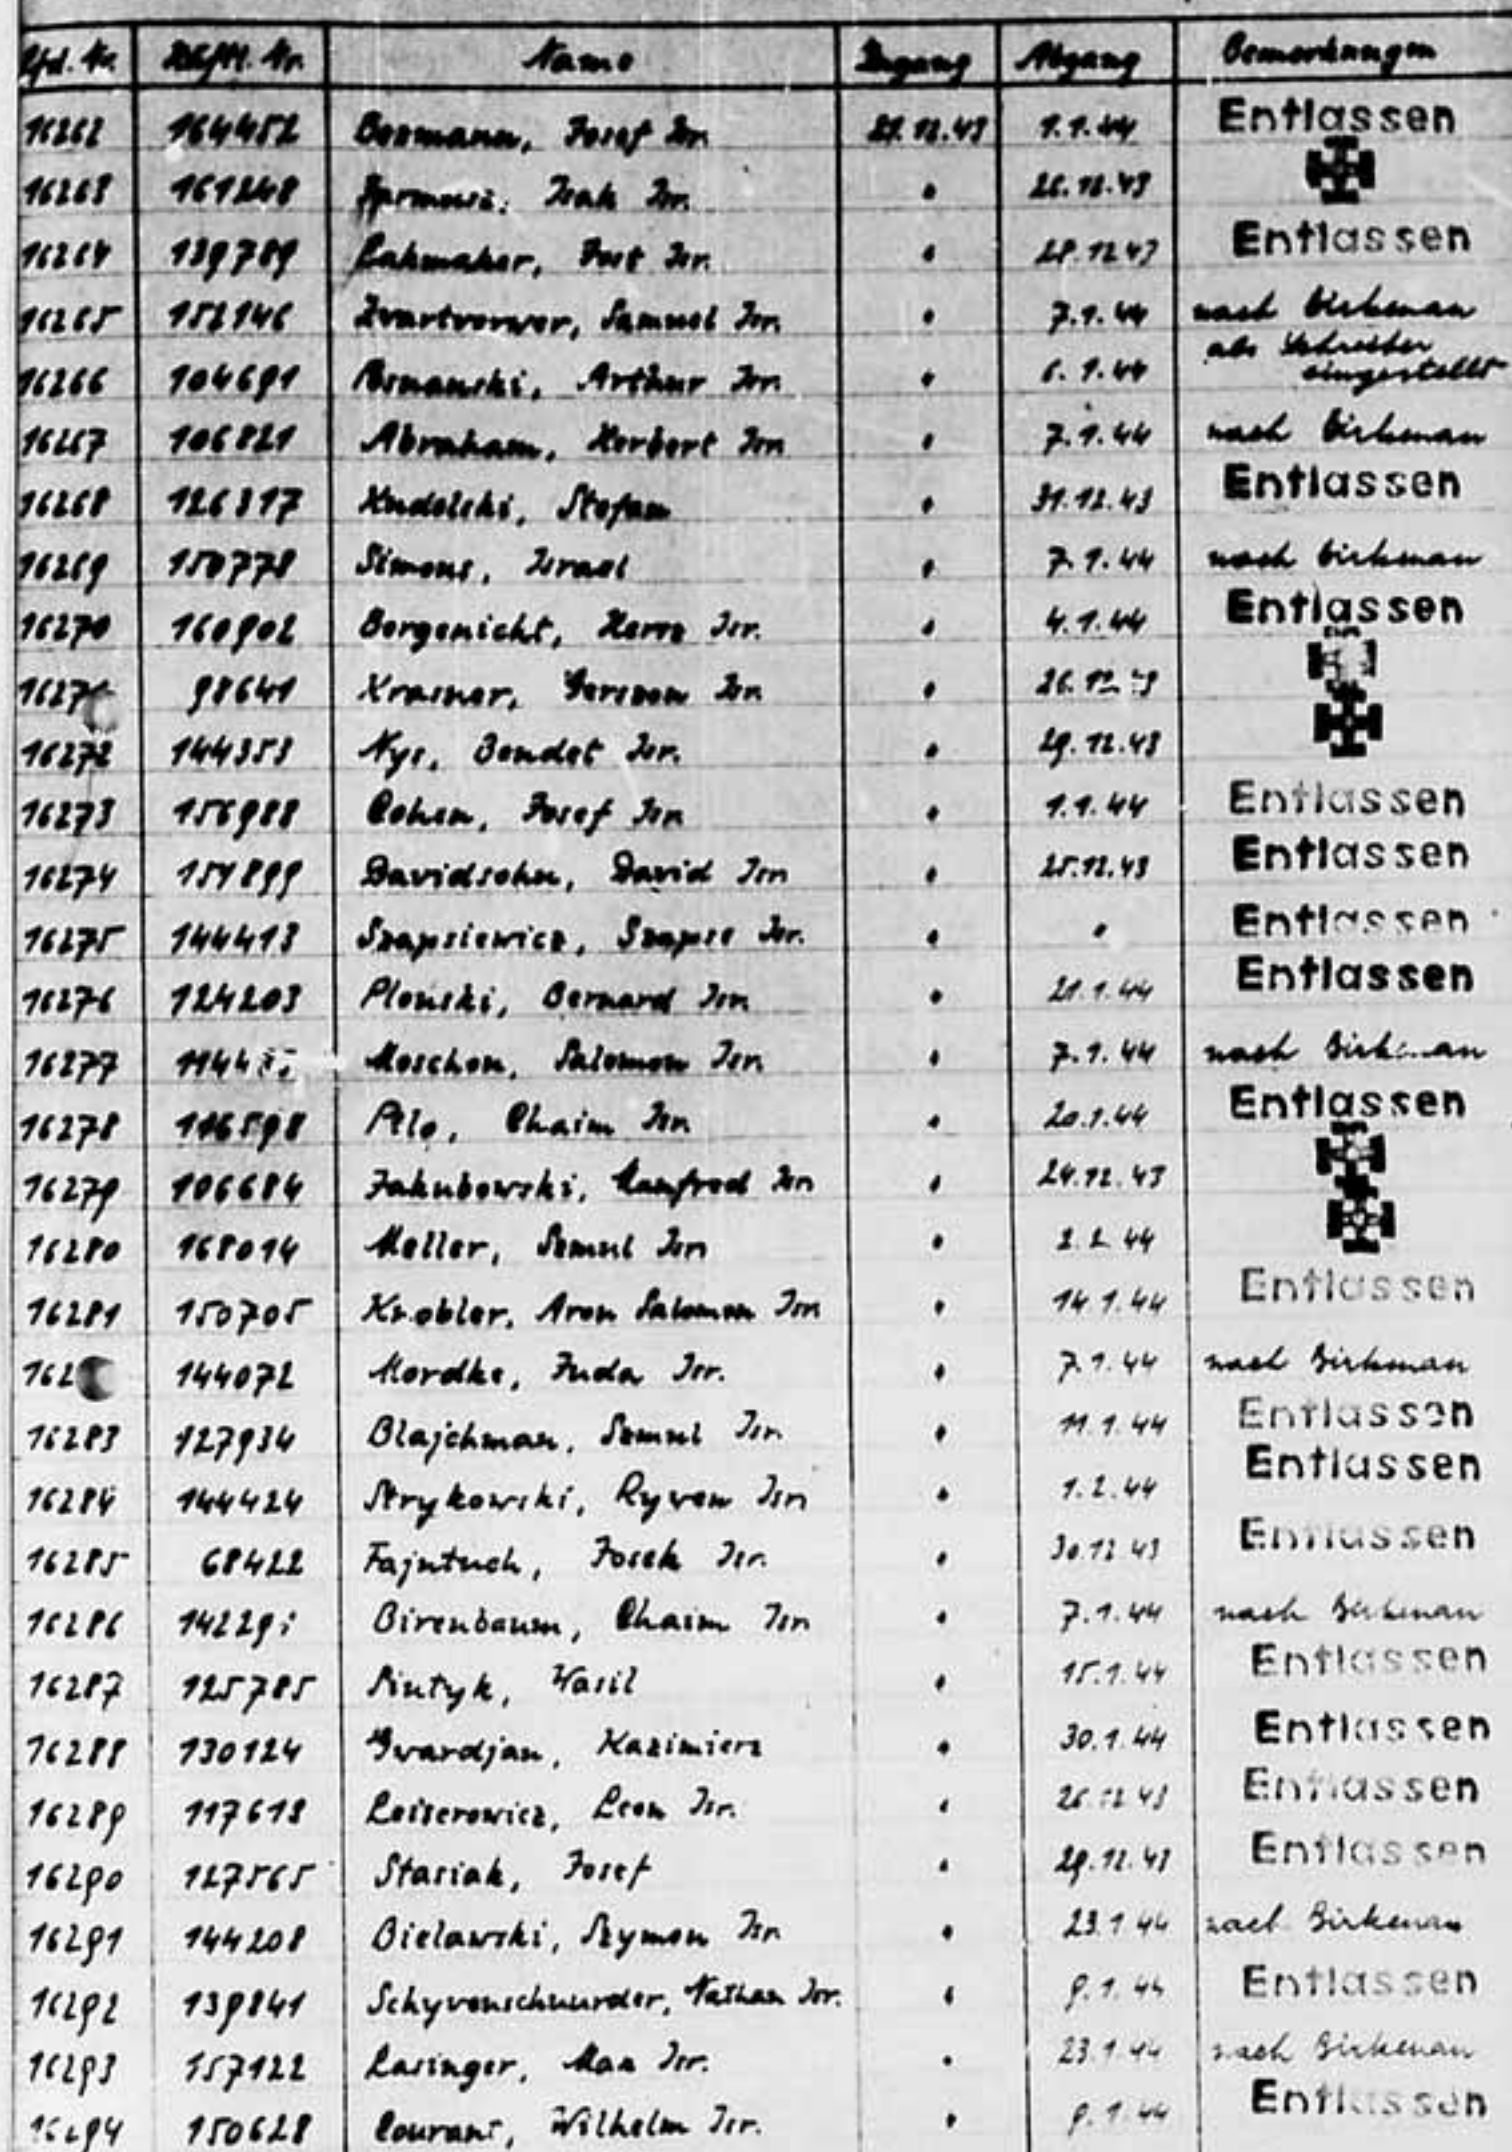 Lfd. Nr. Häftl. Nr. Name Zugang Abgang Bemerkungen
16262 164452 Josef Isr. 21.12.43 1.1.44 Entlassen
16263 161248 Isak Isr. " 26.12.43
16264 139789 Isr. " 28.12.43 Entlassen
16265 152146 Samuel Isr. " 7.1.44 nach Birkenau
16266 104691 Arthur Isr. " 6.1.44 als Schreiber eingestellt
16267 106821 Abraham, Herbert Isr. " 7.1.44 nach Birkenau
16268 126317 Stefan " 31.12.43 Entlassen
16269 150778 Simons, Israel " 7.1.44 nach Birkenau
16270 160902 Borgenicht, Herz Isr. " 4.1.44 Entlassen
98641 Krasner, Gerszon Isr. " 26.12.43
16272 144353 Nys, Bendet Isr. " 29.12.43
16273 156988 Cohen, Josef Isr. " 1.1.44 Entlassen
16274 151899 Davidsohn, David Isr. " 25.12.43 Entlassen
16275 144413 Szapsiewicz, Szapse Isr. " " Entlassen
16276 124203 Plonski, Bernard Isr. " 21.1.44 Entlassen
16277 Moschon, Salomon Isr. " 7.1.44 nach Birkenau
16278 116598 Pilo, Chaim Isr. " 20.1.44 Entlassen
16279 106684 Jakubowski, Manfred Isr. " 24.12.43
16280 168014 Meller, Samul Isr. " 2.2.44
16281 150705 Knobler, Aron Salomon Isr. " 14.1.44 Entlassen
144072 Mordke, Juda Isr. " 7.1.44 nach Birkenau
16283 127934 Blajchman, Samul Isr. " 11.1.44 Entlassen
16284 144424 Strykowski, Ryven Isr. " 1.2.44 Entlassen
16285 68422 Fajntuch, Josek Isr. " 30.12.43 Entlassen
16286 Birenbaum, Chaim Isr. " 7.1.44 nach Birkenau
16287 125785 Pintyk, Wasil " 15.1.44 Entlassen
16288 130124 Gvardjan, Kazimierz " 30.1.44 Entlassen
16289 117613 Leiserowicz, Leon Isr. " 26.12.43 Entlassen
16290 127565 Stasiak, Josef " 29.12.43 Entlassen
16291 144208 Bielawski, Szymon Isr. " 23.1.44 nach Birkenau
16292 139841 Schyvenschuurder, Nathan Isr. " 9.1.44 Entlassen
16293 157122 Lasinger, Max Isr. " 23.1.44 nach Birkenau
16294 150628 Courant, Wilhelm Isr. " 9.1.44 Entlassen